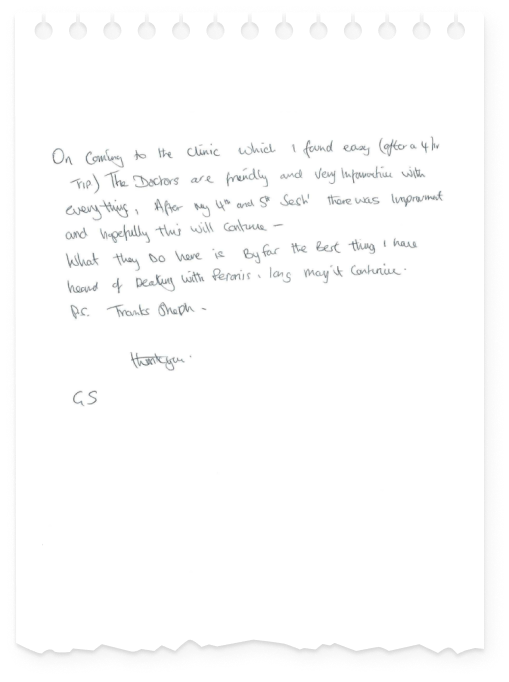 On Coming to the Clinic which I found easy (after a 4 hr
Trip) The Doctors are friendly and very Informative with
everything, After my 4th and 5th Sesh' there was Improvement
and hopefully this will Continue –
What they Do here is By far the Best thing I have
heard of Dealing with Peronis, long may it Continue.
P.S. Thanks Sheph -
thankyou.
GS